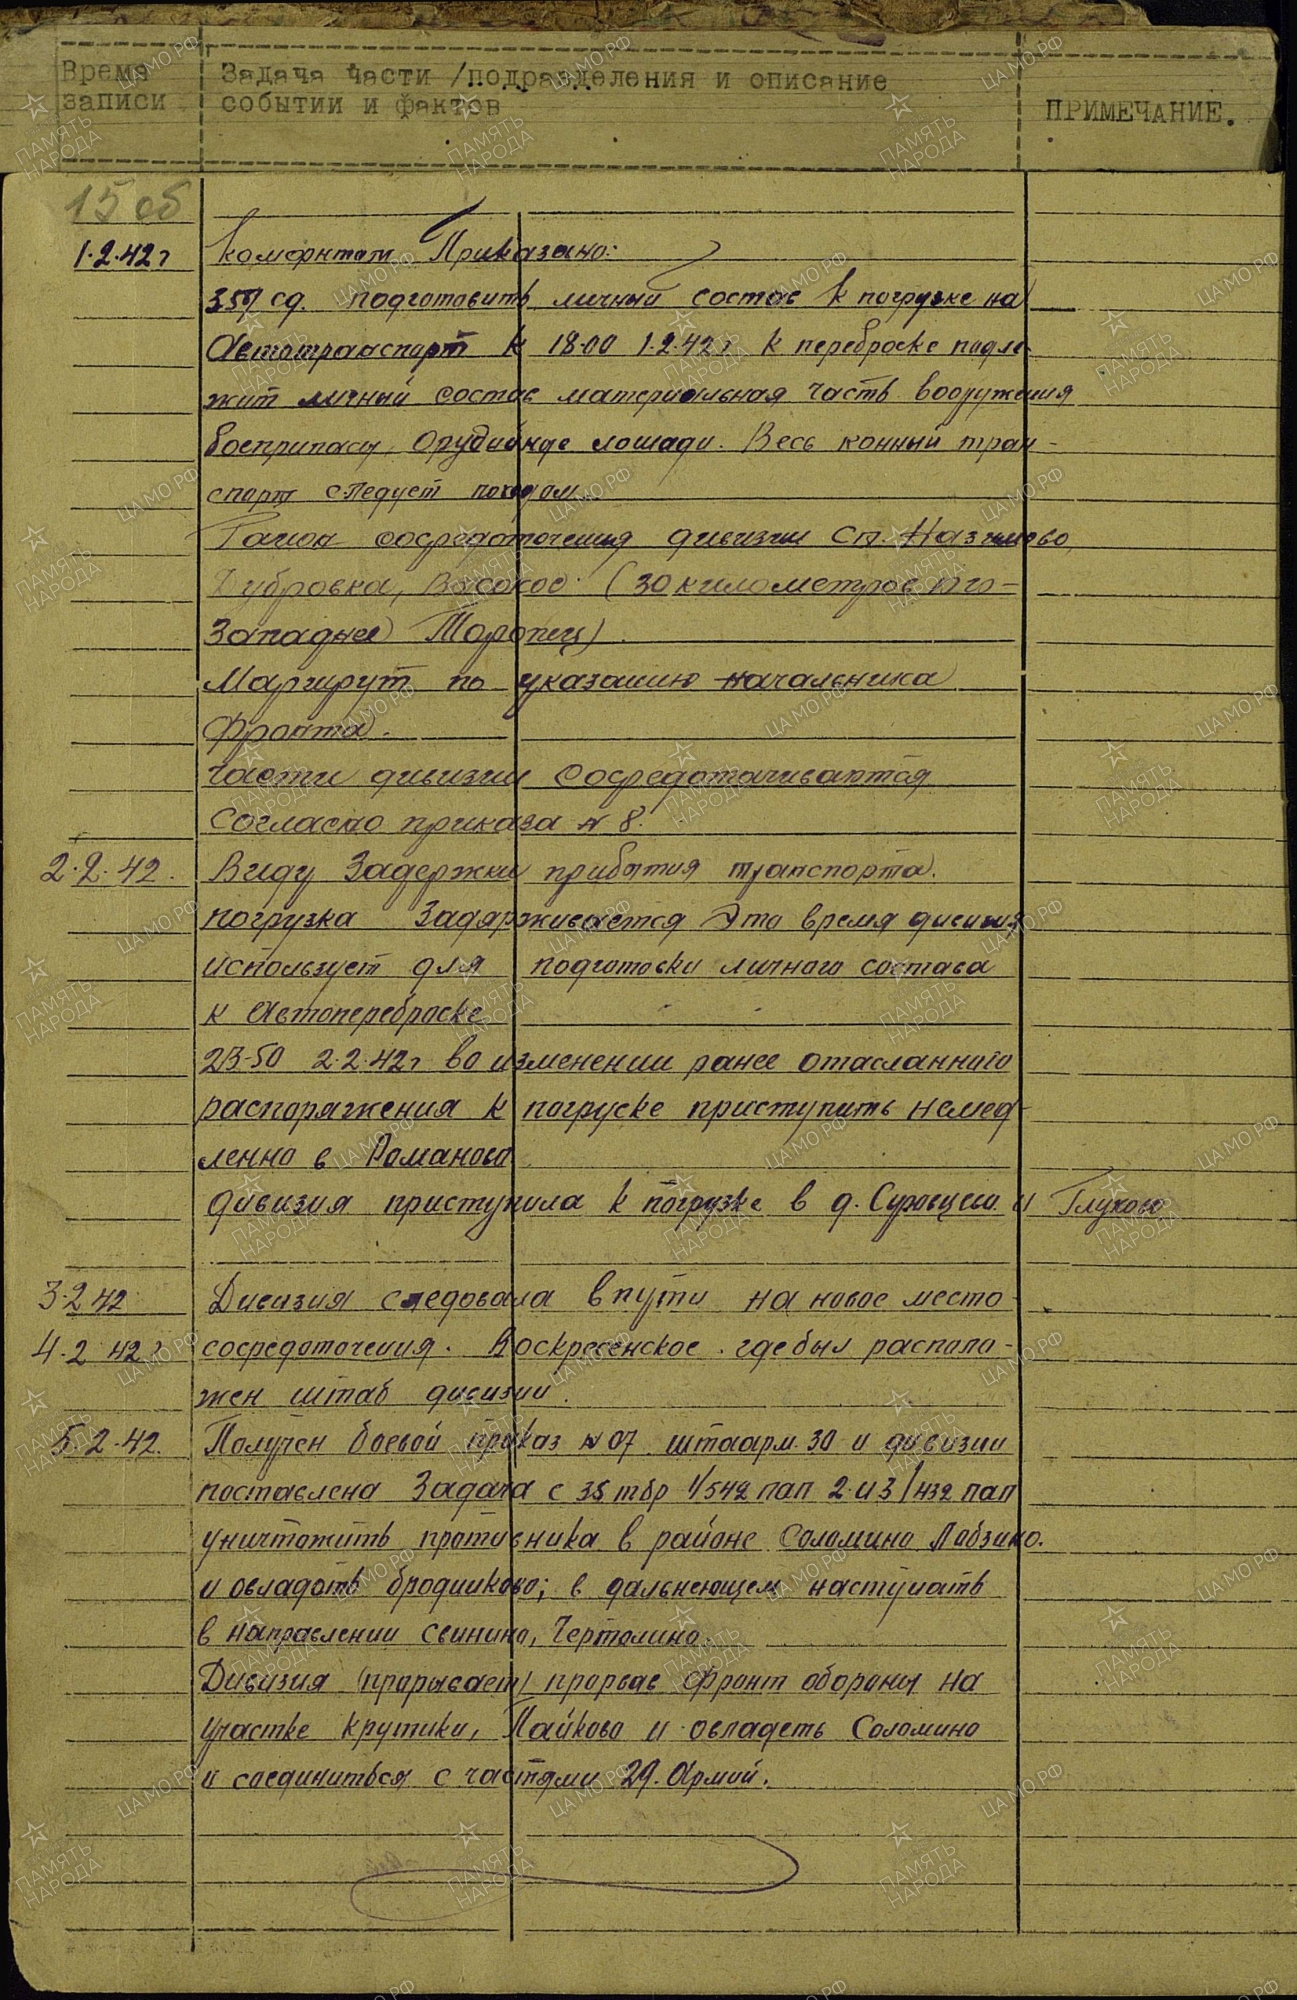 Время записи
Задача части /подразделения и описание
событии и фактов
ПРИМЕЧАНИЕ.
15 об
1.2.42г Комфронтом Приказано:
359 сд. подготовить личный состав к погрузке на
Автотранспорт к 18.00 1.2.42г к переброске подле-
жит личный состав материальная часть вооружения
боеприпасы, Орудийные лошади. Весь конный тран-
спорт следует походом
Район сосредоточения дивизии Ст. Назимово,
Дубровка, Высокое (30 километров Юго-
Западнее Торопец).
Маршрут по указанию начальника
Фронта.
Части дивизии Сосредотачиваются
Согласно приказа № 8.
2.2.42. Виду Задержки прибытия транспорта.
погрузка Задярживается Это время дивизия
использует для подготовки личного состава
к Автопереброске
23-50 2.2.42г во изменении ранее отасланного
распоряжения к погруске приступить немед-
ленно в Романово
дивизия приступила к погрузке в д. Суровцево и Глухово
3.2 42 Дивизия следовала в пути на новое место
4.2 42г сосредоточения. Воскресенское. где был распола-
жен штаб дивизии.
5.2.42. Получен боевой приказ №07 штаарм.30 и дивизии
поставлена Задача с 35 тбр 1/542 пап 2 и 3/432 пап
уничтожить противника в районе Соломино Лабзино.
и овладеть бродниково; в дальнеющем наступать
в направлении Свинино, Чертолино.
Дивизия (прорывает) прорвав Фронт обороны на
участке Крутики, Пайково и овладеть Соломино
и соединиться с частями 29. Армий.